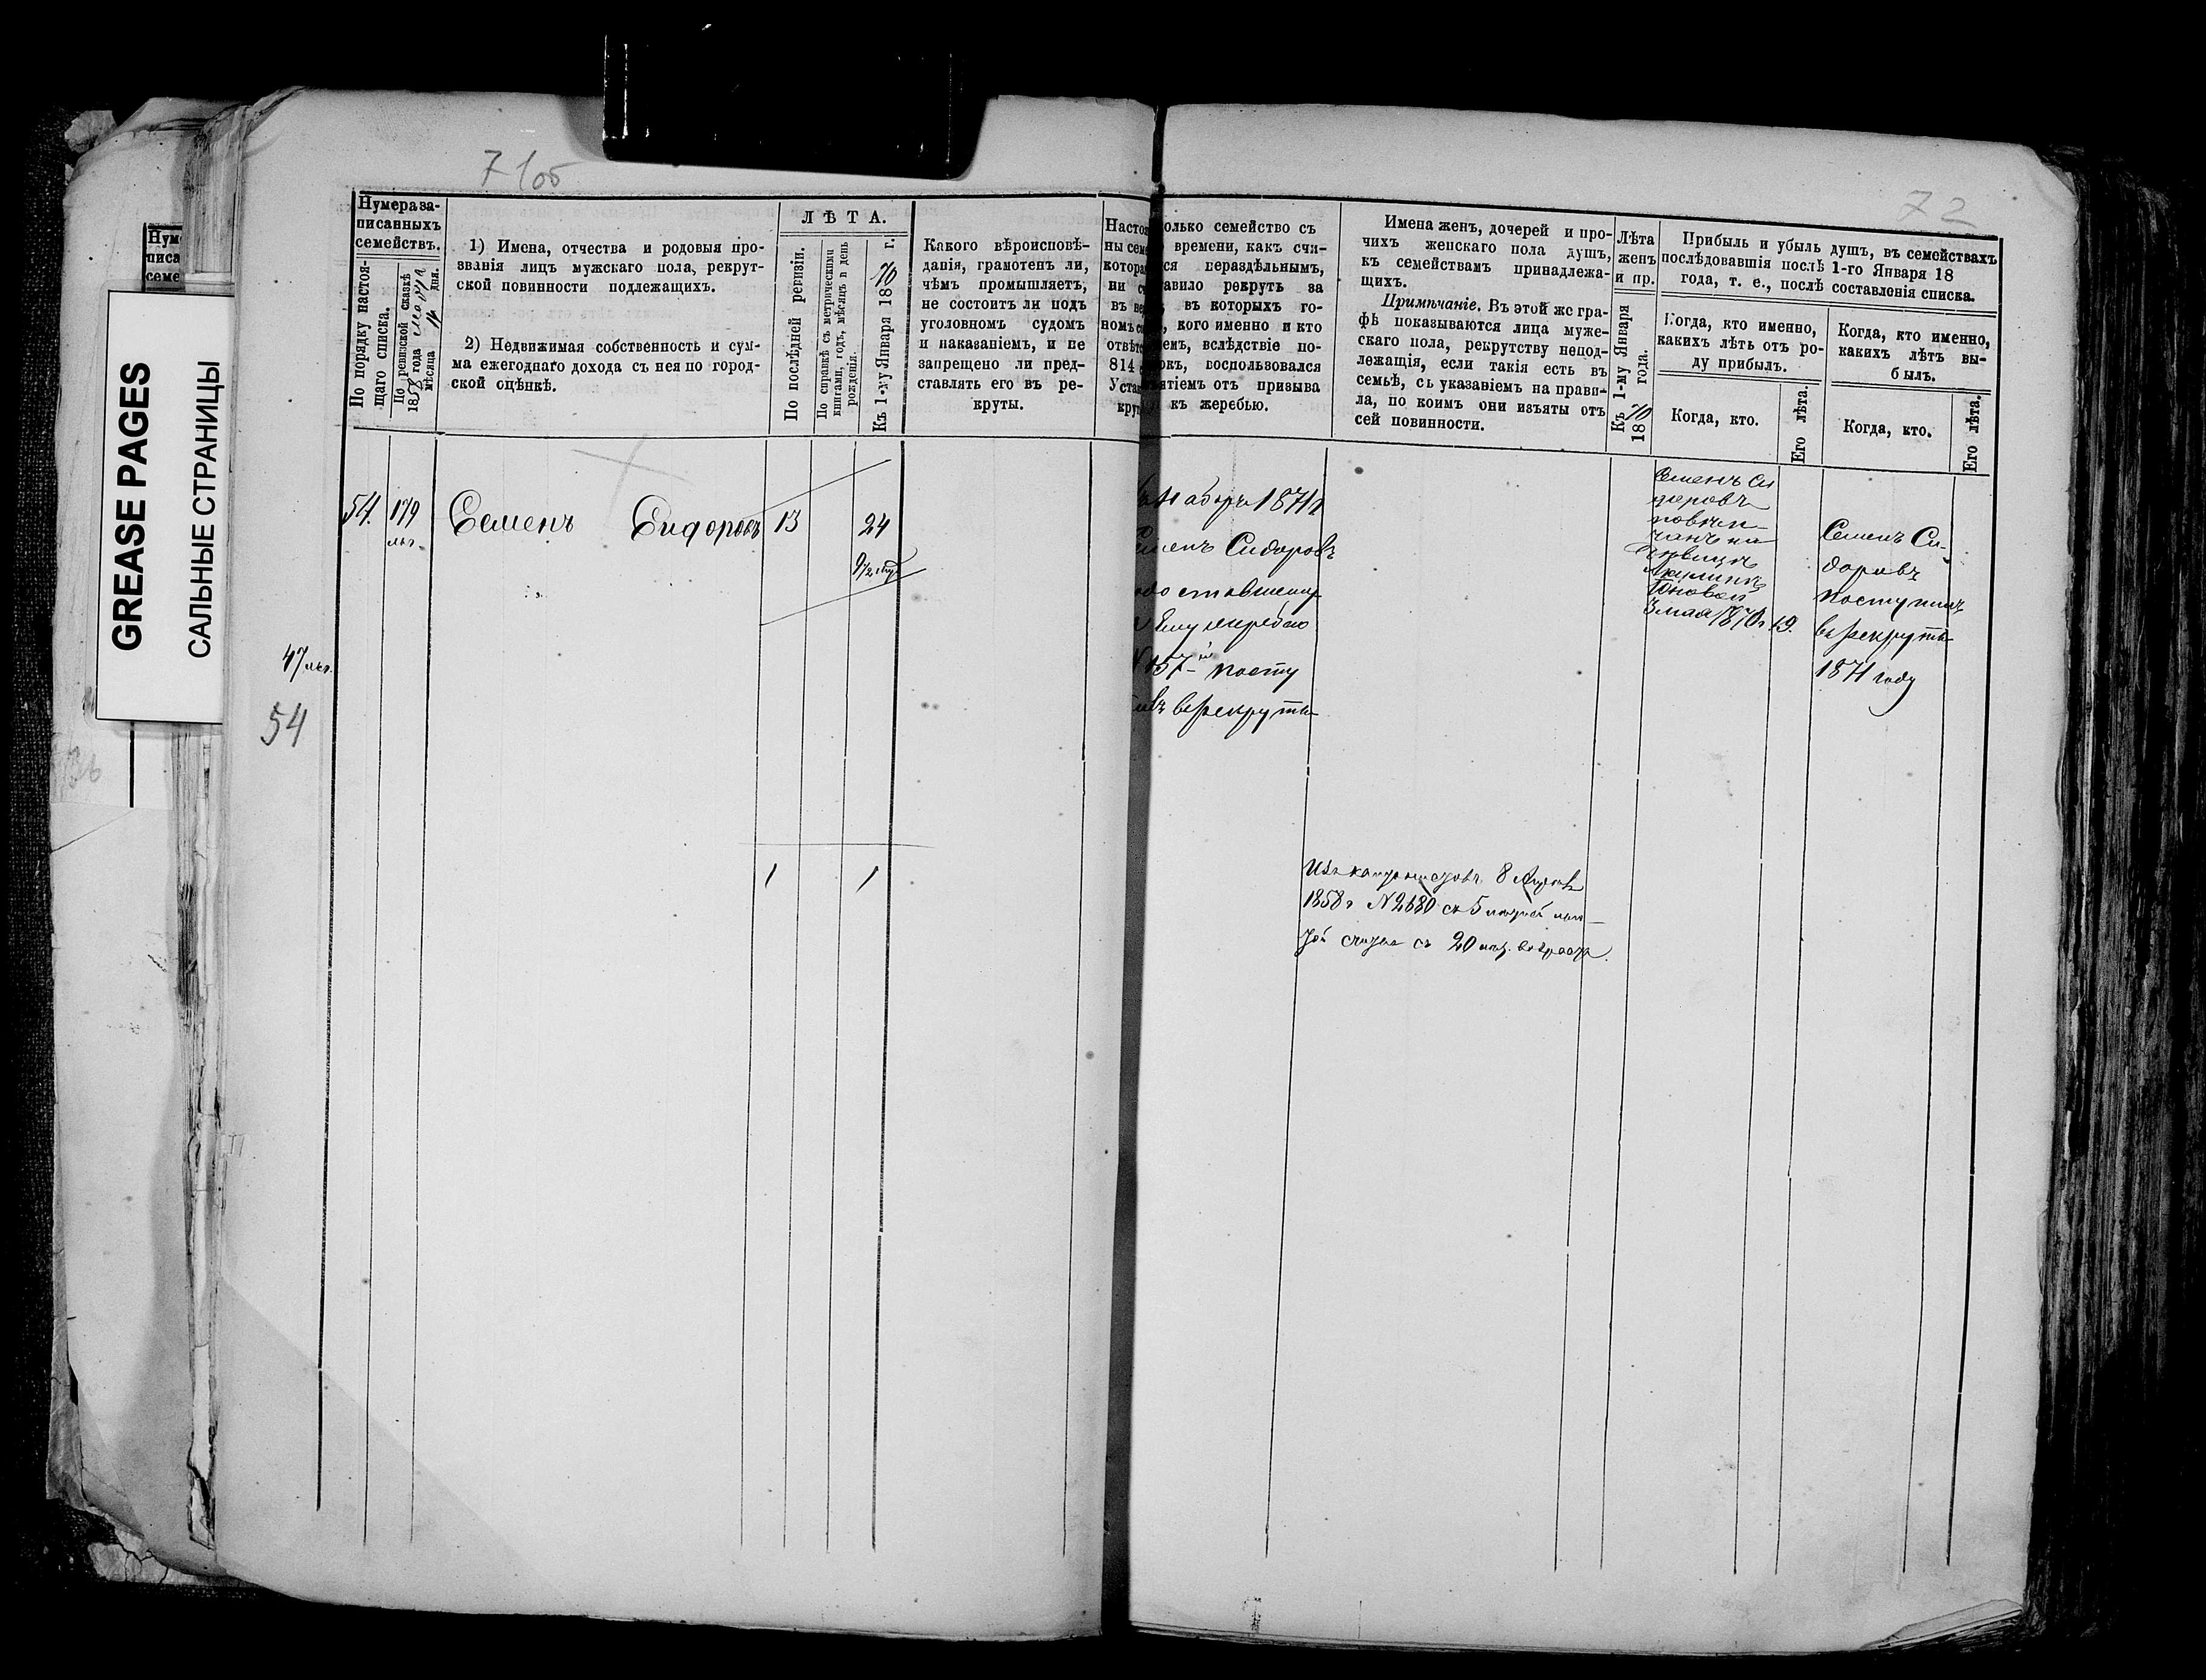 71об
72
GREASE PAGES
САЛЬНЫЕ СТРАНИЦЫ
Нум
писа
семе
Нумера за-
писанныхъ
семействъ.
По порядку настоя-
щаго списка.
По ревизской сказкѣ
1858 года
мѣсяца 14 дня.
1) Имена, отчества и родовыя про-
званія лицъ мужскаго пола, рекрут-
ской повинности подлежащихъ.
2) Недвижимая собственность и сум-
ма ежегоднаго дохода съ нея по город-
ской оцѣнкѣ.
ЛѢТА.
По послѣдней ревизіи.
По справкѣ съ метрическими
книгами, годъ, мѣсяцъ и день
рожденія.
Къ 1-му Января 1870 г.
Какого вѣроисповѣ-
данія, грамотенъ ли,
чѣмъ промышляетъ,
не состоитъ ли подъ
уголовномъ судомъ
и наказаніемъ, и не
запрещено ли пред-
ставлять его въ ре-
круты.
Настоя
ны сем
котора
ни с
въ ве
номъ с
отвѣтс
814 с
Уста
кру
олько семейство съ
времени, какъ счи-
ся нераздѣльнымъ,
авило рекрутъ за
въ которыхъ го-
, кого именно и кто
емъ, вслѣдствіе по-
окъ, воспользовался
ятіемъ отъ призыва
къ жеребью.
Имена женъ, дочерей и про-
чихъ женскаго пола душъ,
къ семействамъ принадлежа-
щихъ.
Примѣчаніе. Въ этой же гра-
фѣ показываются лица муже-
скаго пола, рекрутству непод-
лежащія, если такія есть въ
семьѣ, съ указаніемъ на прави-
ла, по коимъ они изъяты отъ
сей повинности.
Лѣта
женъ
и пр.
Къ 1-му Января
1870 года.
Прибыль и убыль душъ, въ семействахъ
послѣдовавшія послѣ 1-го Января 18
года, т. е., послѣ составленія списка.
Когда, кто именно,
какихъ лѣтъ отъ ро-
ду прибылъ.
Когда, кто.
Его лѣта.
Когда, кто именно,
какихъ лѣтъ вы-
былъ.
Когда, кто.
Его лѣта.
54. 179 Семенъ Сидоровъ 13 24
47
54
1 1
наборъ 1871
Семенъ Сидоровъ
ему жеребью
N 157-й посту
въ рекруты
Семенъ Си
доровъ
повѣн-
чанъ на
дѣвицѣ
3 мая 1870 г. 19.
Семенъ Си-
доровъ
поступилъ
въ рекруты
1871 году
Изъ кантонистовъ 8
1858 г N 2680 съ 5
считая съ 20 лѣт. возраста.